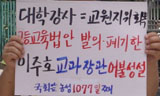 대학강사 = 교원지위회복
고등교육법안 발의·폐기한
이주호 교과장관 어불성설
국회앞 농성 1097일째